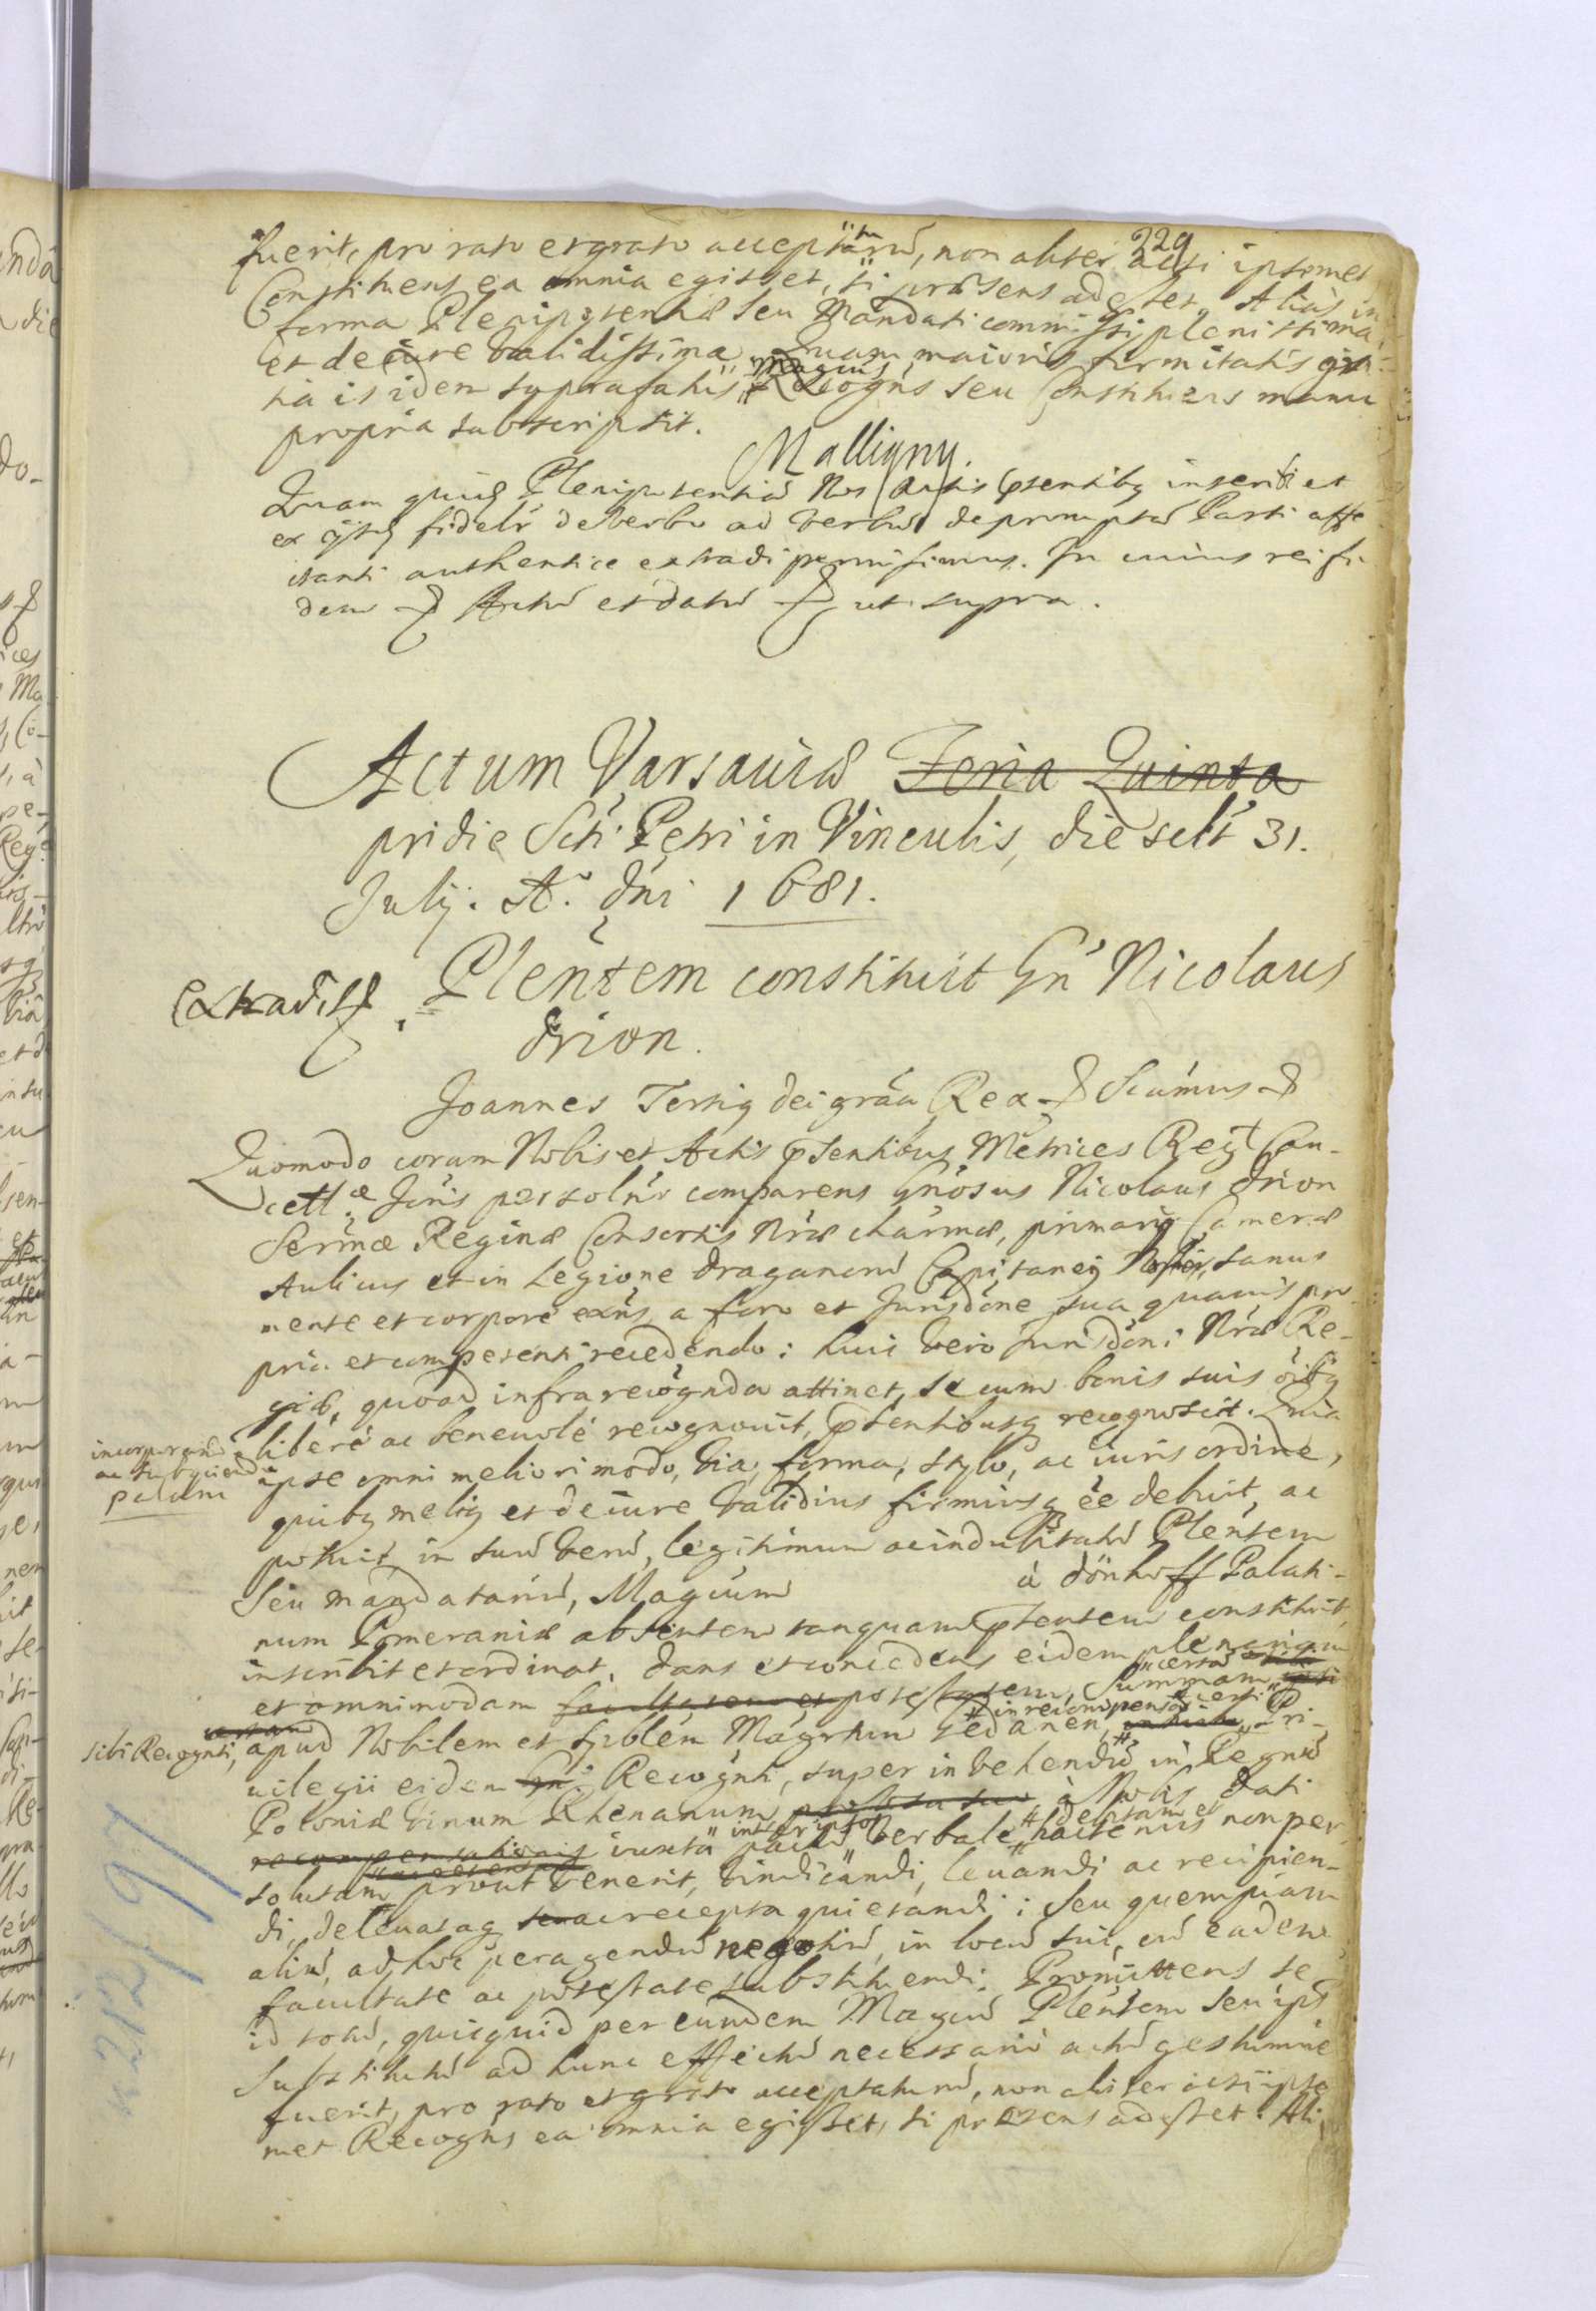 229
fuerit, pro rato et grato acceptaturũ, non aliter acsi ipsemet
Constituens ea omnia egisset, si præsens adesset. Aliàs in
forma Plenipotentiæ seu Mandati commissi plenissima
et de iure validissima. Quam maioris firmitatis gra-
tia is idem supra fatus Magcus Recogns seu Constituens manu
propria subscripsit.
Malligny.
Quam quidē Plenipotentiã Nos Actis pñtentibꝫ inseri et
ex ijsdē fidelr de verbo ad verbũ depromptã Parti affe
ctanti authentice extradi permisimus. In cuius rei fi-
dem Actũ et datũ ut supra.
Actum Varsaviæ Feria Quinta
pridie Sti Petri in Vinculis, die sclt 31.
Julij. Ao. dni 1681.
Extradiss.
Plentem constituit Gn Nicolaus
Drion.
Joannes Tertiꝫ dei graa Rex Scimus
Quomodo coram Nobis et Actis pñsentibus Metrices Regī Can-
cellæ Jnris personlr comparens Gnosus Nicolaus Drion
Sermæ Reginæ Consortis Nræ charmæ, primariꝫ Cameræ
Aulicus et in Legione draganorũ Capitaneꝫ Noster, sanus
mente et corpore exns, a foro et Jurisdone sua quavis pro-
pria et competenti recedendo: huic vero Jurisdoni Nræ Re-
giæ, quoad infra recognda attinet, se cum bonis suis oibꝫ
incorporando
ac subijciendo
palam
liberè ac benevolè recognovit, pñsentibusqꝫ recognoscit. Quia
ipse omni meliori modo, via, forma, stylo, ac iuris ordine,
quibꝫ meliꝫ et de iure validius firmiusqꝫ ee debuit, ac
potuit, in suũ verũ, legitimum ac indubitatũ Plentem
seu mandatariũ, Magcum à Dönhoff Palati-
num Pomeraniæ absentem tanquam pñsentem constituit,
inscribit et ordinat, dans et concedens eidem plenariam
et omnimodam facultatem et potestatem, Summam certã
sibi Recognti, apud Nobilem et Spblem Magrtum Gedanen, in recompensã certi Pri-
vilegii eidem Gn. Recognti, super invehendũ in Regnũ
Poloniæ vinum Rhenanum à Nobis dati
recompensationis iuxta interiptũ pactũ verbale debitam et hactenus non per
solutam prout venerit, vindicandi, levandi ac recipien-
di, de levatag ac recepta quietandi: seu quempiam
aliũ, ad hoc peragendũ negotiũ, in locũ sui, cũ eadem
facultate ac potestate substituendi: Promittens se
id totũ, quicquid per eundem Magcũ Plentem seu ips
substitutũ ad hunc effectũ necessariò actũ gestumve
fuerit, pro rato et grato acceptaturũ, non aliter acsi ipse
met Recogns ea omnia egisset, si præsens adesset. Ali
212/91